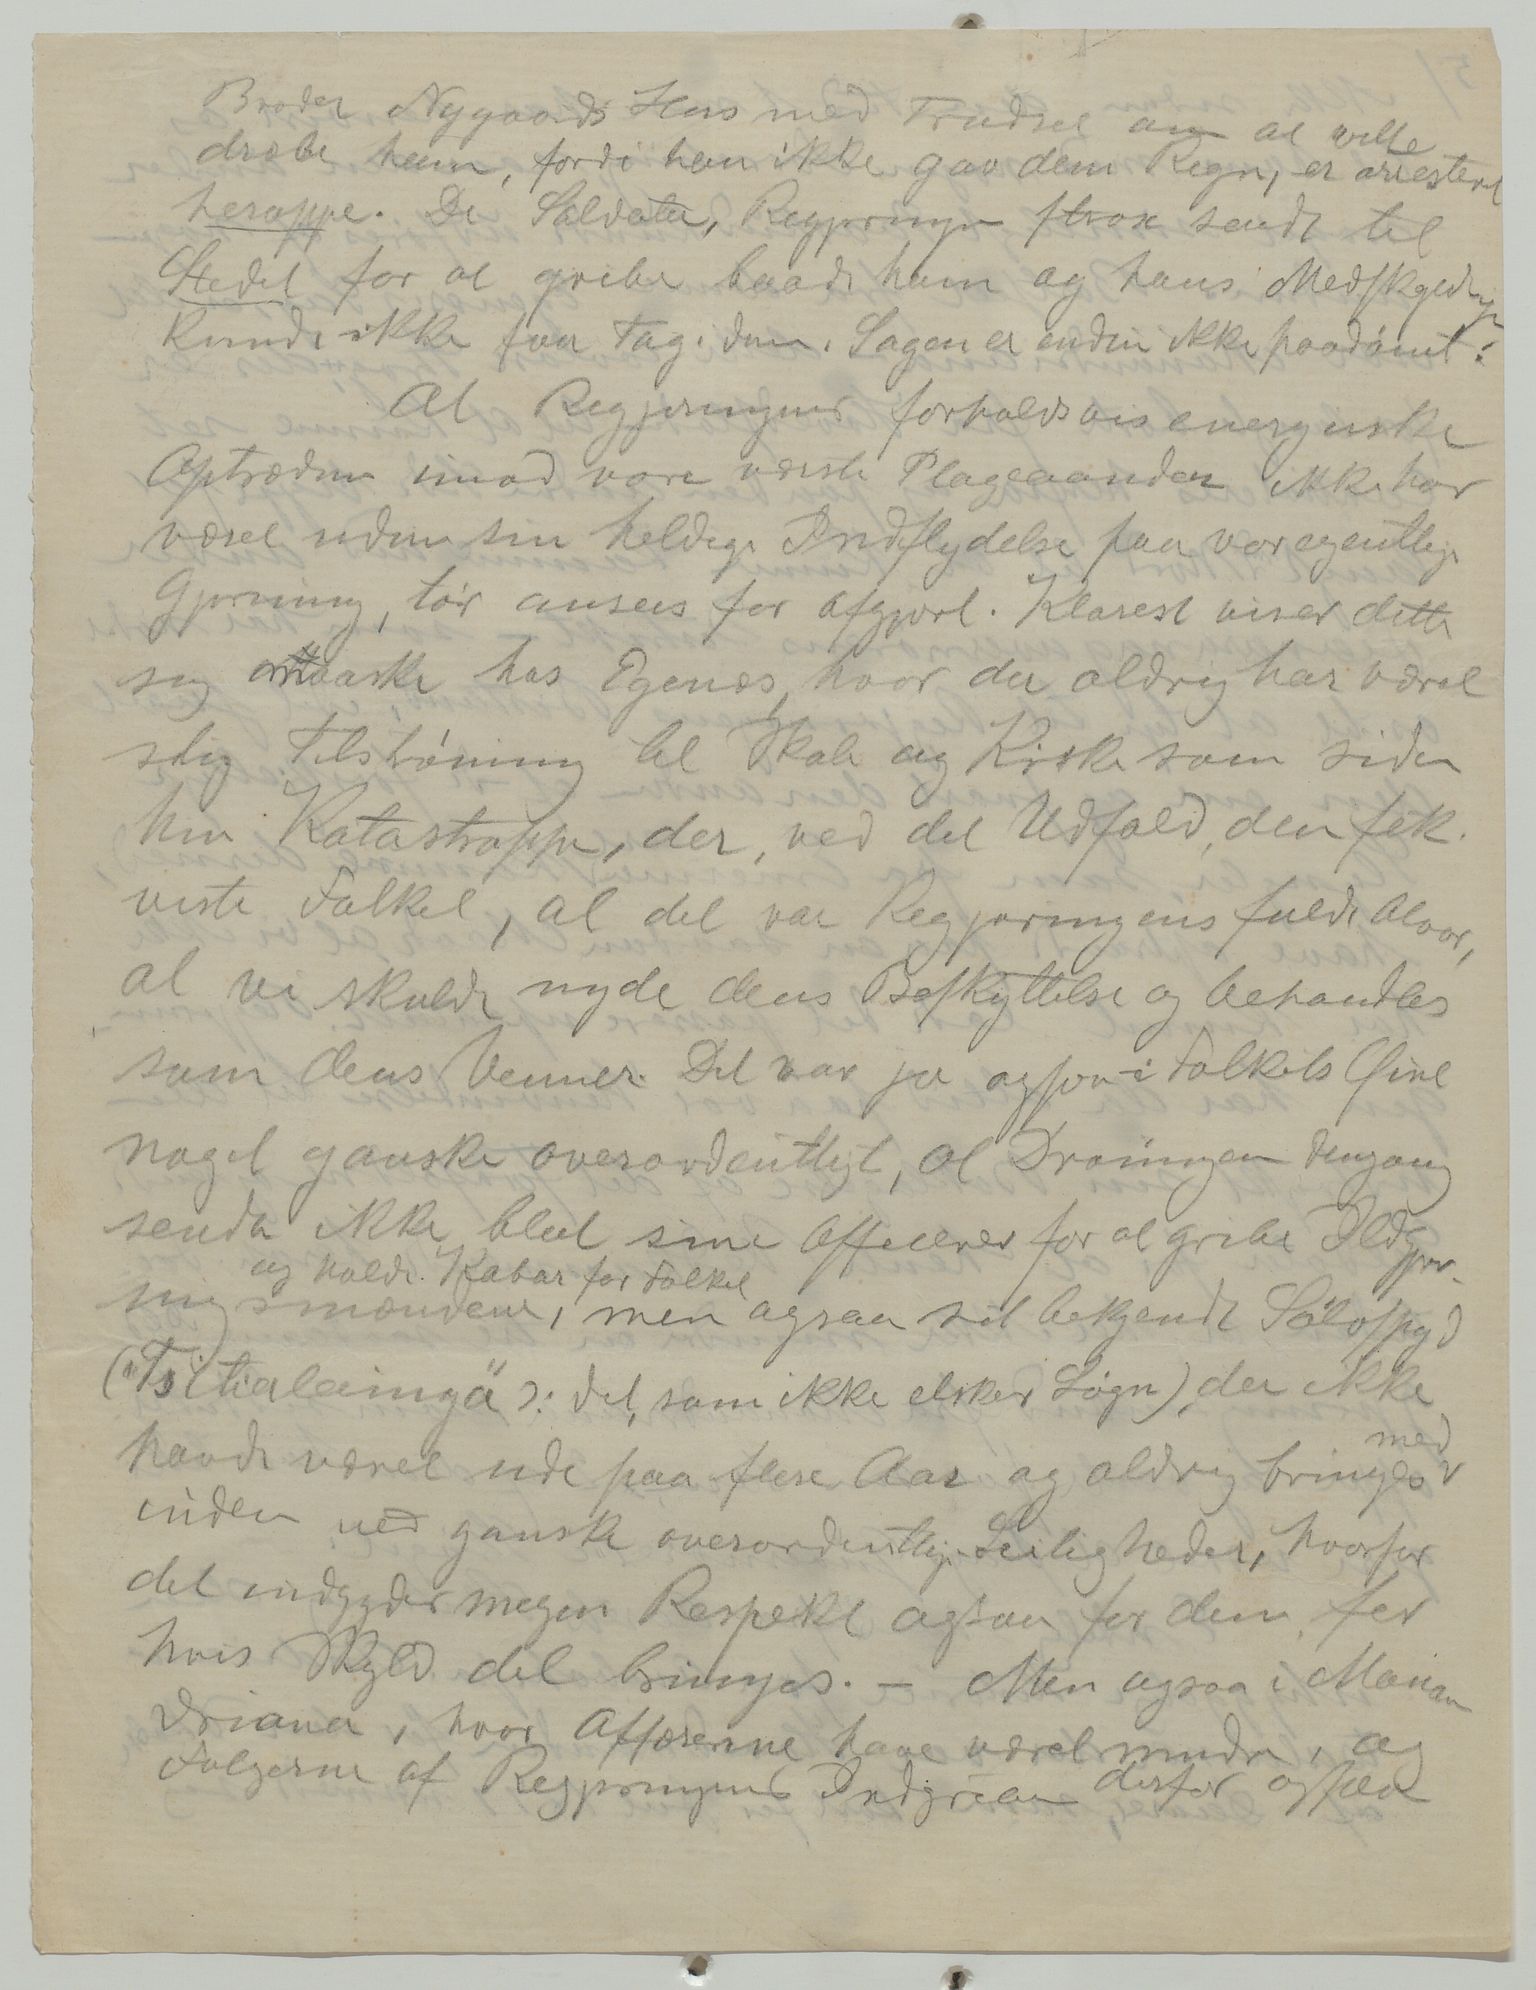 Broder Nygaards Hus med Trudsel om at ville
dræbe ham, fordi han ikke gav dem Regn, er arresteret
heroppe. De Soldater, Regjeringen strax sendte til
Stedet for at gribe baade ham og hans Medskyldige
kunde ikke faa Tag i dem. Sagen er endnu ikke paadömt.
At Regjeringens forholdsvis energiske
Optræden imod vore værste Plageaander ikke har
været uden sin heldige Indflydelse paa vor egentlige
Gjerning, tör ansees for afgjort. Klarest viser dette
sig maaske hos Egenæs, hvor der aldrig har været
slig Tilströmning til Skole og Kirke som siden
hin Katastrophe, der, ved det Udfald, den fik
viste Folket, at det var Regjeringens fulde Alvor,
at vi skulde nyde dens Beskyttelse og behandles
som dens Venner. Det var jo ogsaa i Folkets Öine
noget ganske overordentligt, at Droningen dengang
sendte ikke blot sine Officerer for at gribe Ildgjer-
og holde Kabar for Folket
ningsmændene, men ogsaa sit bekjendte Sölvspyd
("Tsitialainga" ɔ: det, som ikke elsker Lögn), der ikke
havde været ude paa flere Aar og aldrig bringes med
uden ved ganske overordentlige Leiligheder, hvorfor
det indgyder megen Respekt ogsaa for dem, for
hvis Skyld det bringes. — Men ogsaa i Manan
driana, hvor Affærerne have været mindre, og
Fölgerne af Regjeringens Indgriben derfor ogsaa